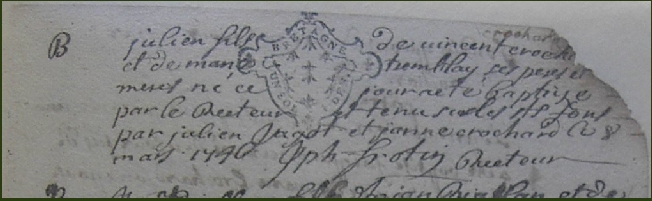 crochar
B julien fils de vincent croch
et de marie tremblay ses pere et
meres né ce jour eté baptise
par le Recteur et tenu sur les sts fons
par julien Jagot et janne crochard le 8
mars 1740 Jph Frotin Recteur
BRETAGNE
UN SOL
B fille
et de